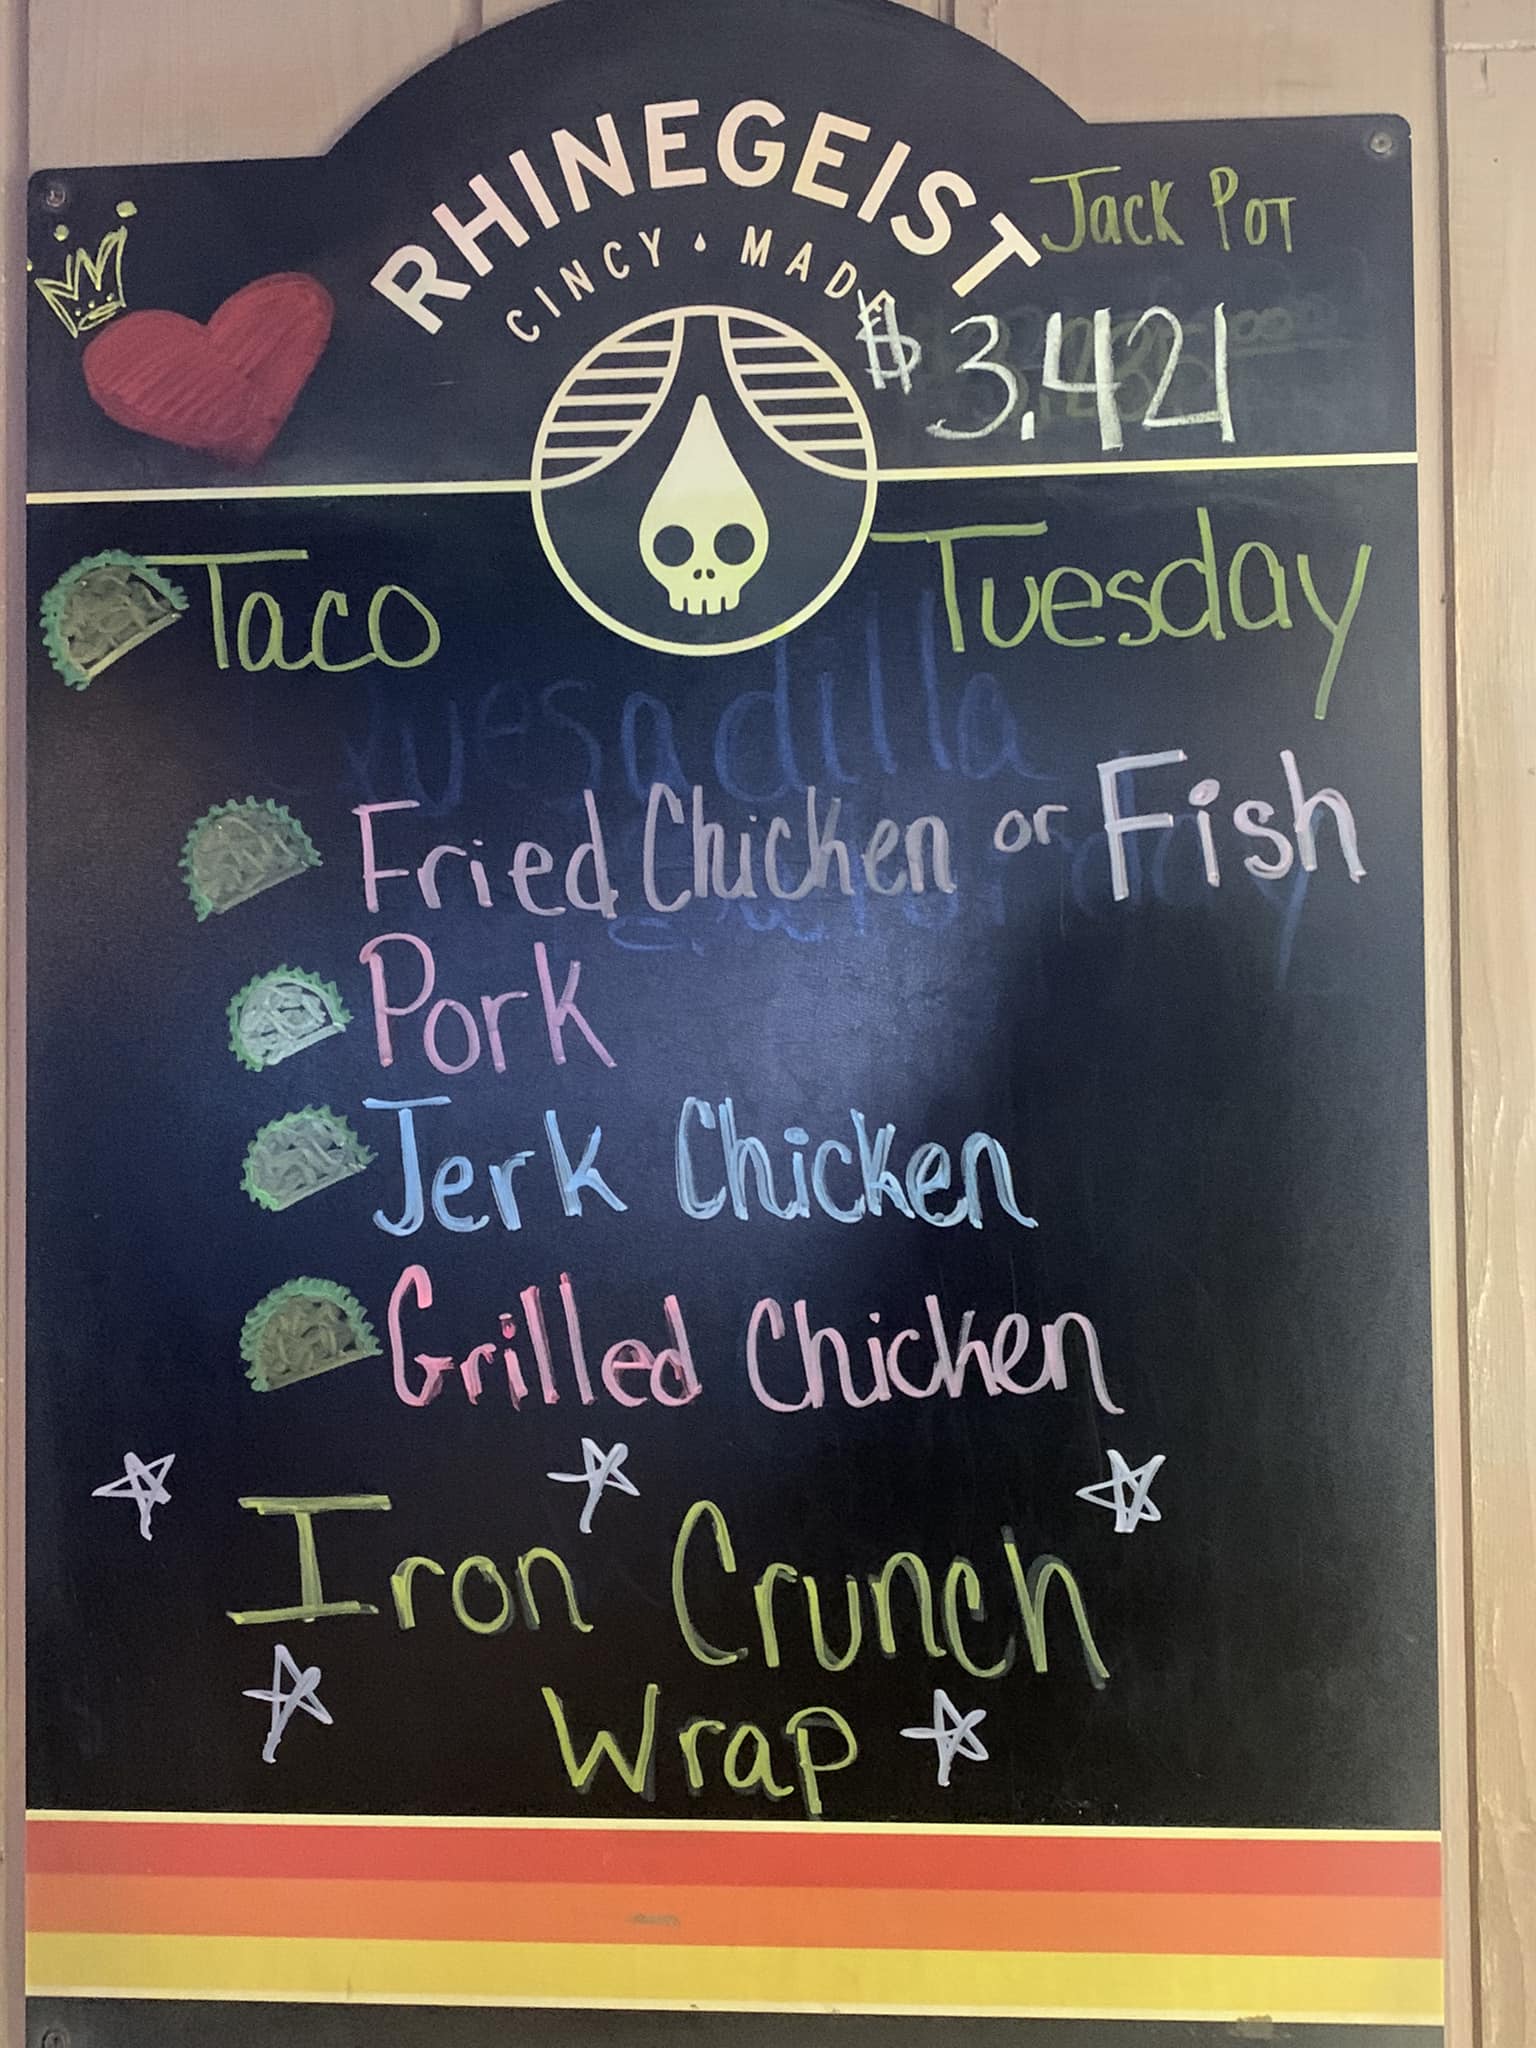 RHINEGEIST
CINCY · MADE
Jack Pot
$ 3,421
Taco Tuesday
Quesadilla
Fried Chicken or Fish
Pork
Jerk Chicken
Grilled Chicken
Iron Crunch
Wrap